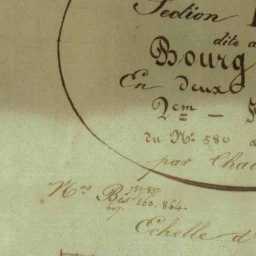 Section
dite
Bourg
En deux
2em —
du No 580
par
Nos Bis 160. 864.
Echelle d